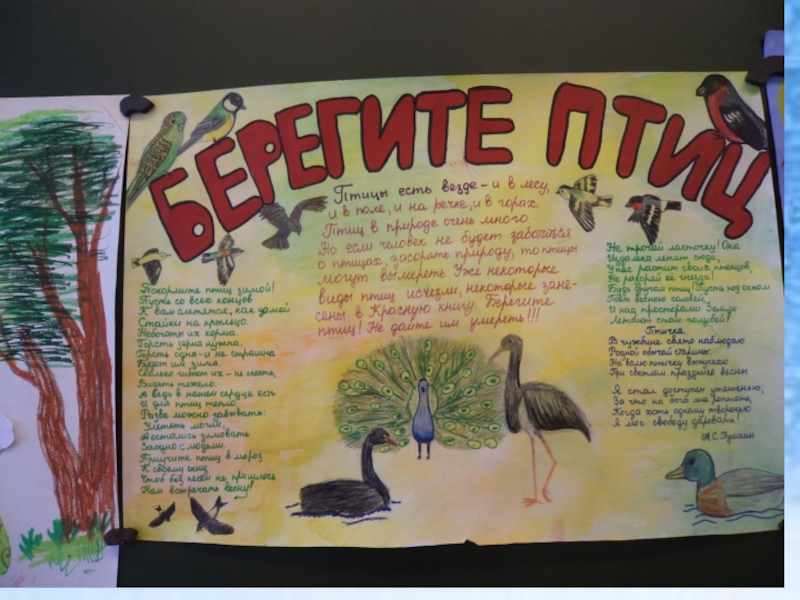 БЕРЕГИТЕ ПТИЦ
Птицы есть везде - и в лесу,
и в поле, и на речке, и в горах.
Птиц в природе очень много
Но если человек не будет заботиться
о птицах, засорять природу, то птицы
могут вымереть Уже некоторые
виды птиц исчезли, некоторые зане-
сены в Красную книгу. Берегите
птиц! Не дайте им умереть!!!
Покормите птиц зимой!
Пусть со всего концов
К вам слетятся, как домой
Стайки на крыльцо.
Небогаты их корма.
Горсть зерна нужна,
Горсть одна - и не страшна
Будет им зима.
Сколько гибнет их - не счесть,
Видеть тяжело.
А ведь в нашем сердце есть
И для птиц тепло.
Разве можно забывать:
Улететь могли,
А остались зимовать
Заодно с людьми.
Приучите птиц в мороз
К своему окну
Чтоб без песен не пришлось
Нам встречать весну!
Не трогай ласточку! Она
Издалека летит сюда,
У нас растит своих птенцов,
Не разоряй её гнезда!
Будь другом птиц! Пусть под окном
Поёт весною соловей,
И над просторами Земли
Летают стаи голубей!
Птичка.
В чужбине свято наблюдаю
Родной обычай старины:
На волю птичку выпускаю
При светлом празднике весны.
Я стал доступен утешенью;
За что на бога мне роптать,
Когда хоть одному творенью
Я мог свободу даровать!
А.С. Пушкин